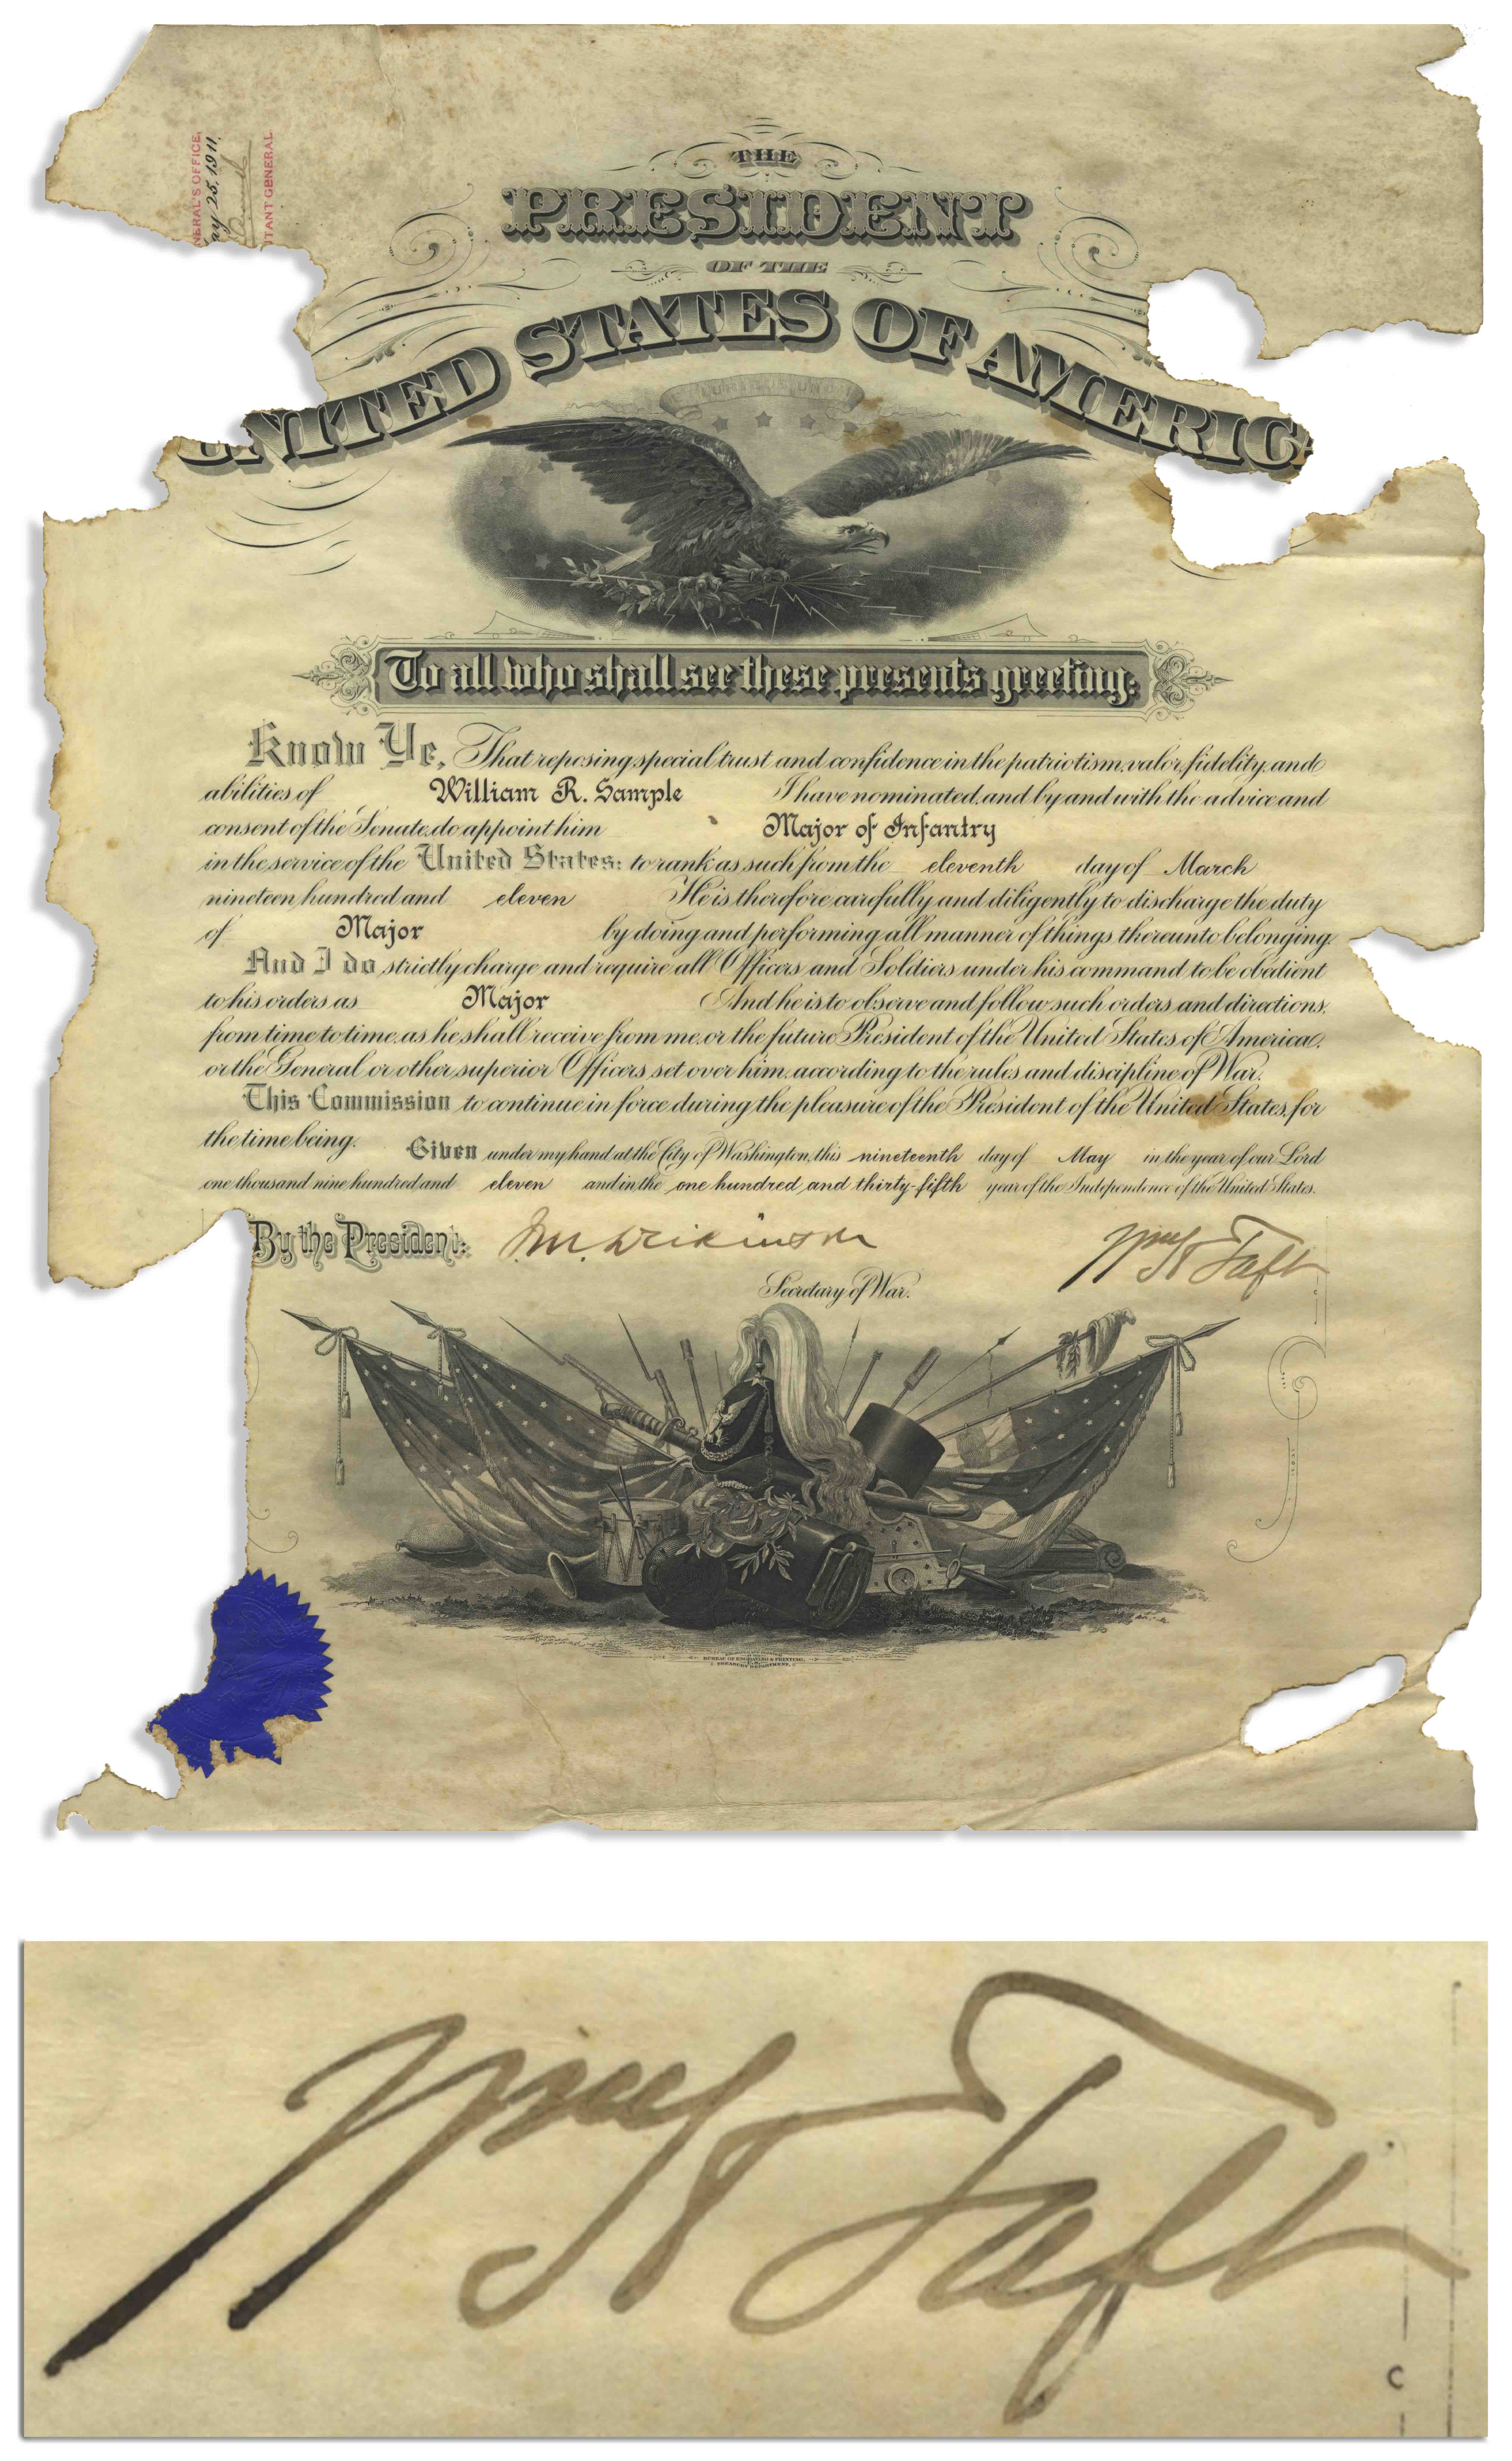 NERAL'S OFFICE,
ay 25, 1911.
TANT GENERAL
THE
PRESIDENT
OF THE
UNITED STATES OF AMERIC
To all who shall see these presents greeting:
Know Ye, That reposing special trust and confidence in the patriotism, valor, fidelity, and
abilities of William R. Sample I have nominated, and by and with the advice and
consent of the Senate, do appoint him Major of Infantry
in the service of the United States: to rank as such from the eleventh day of March
nineteen hundred and eleven He is therefore carefully and diligently to discharge the duty
of Major by doing and performing all manner of things thereunto belonging.
And I do strictly charge and require all Officers and Soldiers under his command to be obedient
to his orders as Major And he is to observe and follow such orders and directions,
from time to time, as he shall receive from me, or the future President of the United States of America,
or the General or other superior Officers set over him, according to the rules and discipline of War.
This Commission to continue in force during the pleasure of the President of the United States, for
the time being. Given under my hand at the City of Washington, this nineteenth day of May in the year of our Lord
one thousand nine hundred and eleven and in the one hundred and thirty-fifth year of the Independence of the United States.
By the President: J.M. Dickinson Wm H Taft
Secretary of War.
BUREAU OF ENGRAVING & PRINTING.
TREASURY DEPARTMENT.
Wm H Taft
C